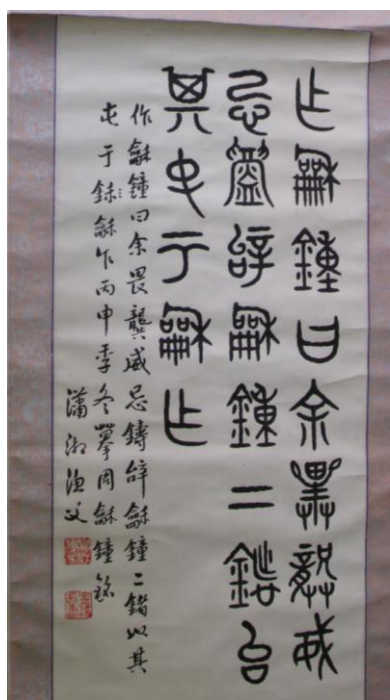 乍龢鐘曰余畏龏威
忌鑄辝龢鐘二鍺台
其屯于龢乍
作龢鐘曰余畏龔威忌鑄辝龢鐘二鍺以其
屯于銤龢乍丙申季冬摹周龢鐘銘
瀟湘漁父